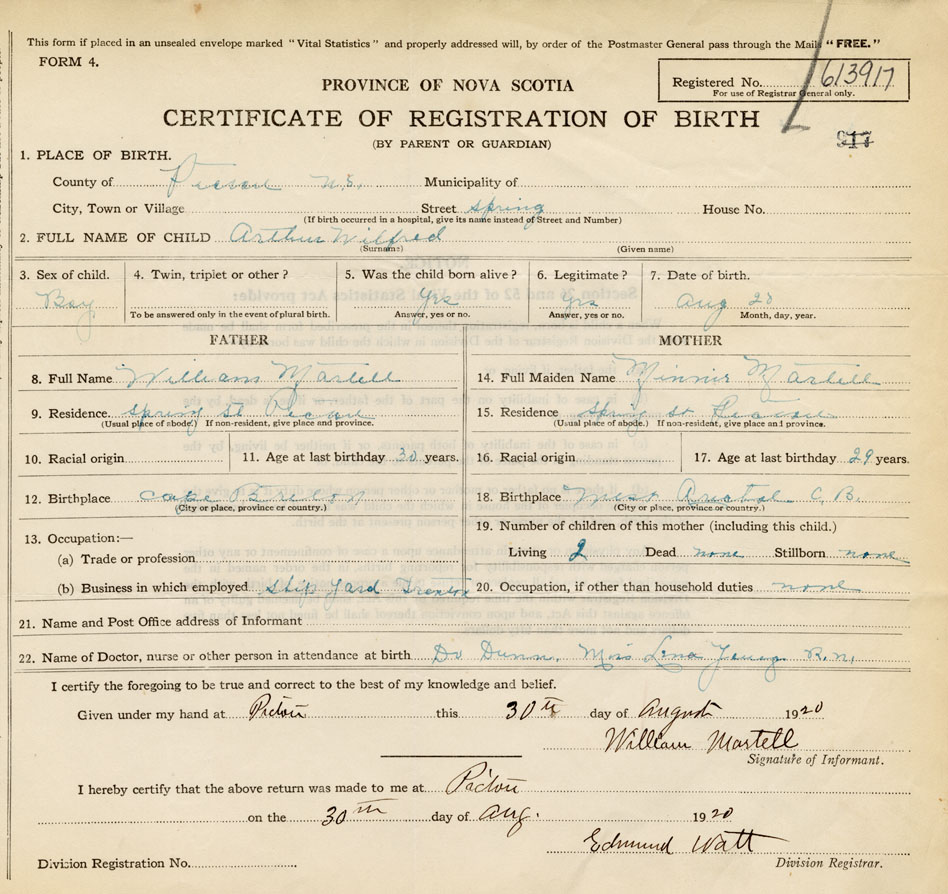 This form if placed in an unsealed envelope marked "Vital Statistics" and properly addressed will, by order of the Postmaster General pass through the Mails "FREE."
FORM 4.
Registered No. 613917
For use of Registrar General only.
PROVINCE OF NOVA SCOTIA
CERTIFICATE OF REGISTRATION OF BIRTH
(BY PARENT OR GUARDIAN)
917
1. PLACE OF BIRTH.
County of N.S. Municipality of
City, Town or Village Street Spring House No.
(If birth occurred in a hospital, give its name instead of Street and Number)
2. FULL NAME OF CHILD Arthur Wilfred
(Surname) (Given name)
3. Sex of child. 4. Twin, triplet or other? 5. Was the child born alive? 6. Legitimate? 7. Date of birth.
Boy Yrs Yrs Aug 28
To be answered only in the event of plural birth. Answer, yes or no. Answer, yes or no. Month, day, year.
FATHER MOTHER
8. Full Name William Martell 14. Full Maiden Name Minnie Martell
9. Residence Spring St 15. Residence Spring St
(Usual place of abode.) If non-resident, give place and province. (Usual place of abode.) If non-resident, give place and province.
10. Racial origin 11. Age at last birthday 30 years. 16. Racial origin 17. Age at last birthday 29 years.
12. Birthplace Cape Breton 18. Birthplace C. B.
(City or place, province or country.) (City or place, province or country.)
13. Occupation:— 19. Number of children of this mother (including this child.)
(a) Trade or profession Living 2 Dead none Stillborn none
(b) Business in which employed Ship Yard Trenton 20. Occupation, if other than household duties none
21. Name and Post Office address of Informant
22. Name of Doctor, nurse or other person in attendance at birth Dr Dunn. Miss Lena Young R.N.
I certify the foregoing to be true and correct to the best of my knowledge and belief.
Given under my hand at Pictou this 30th day of August 1920
William Martell
Signature of Informant.
I hereby certify that the above return was made to me at Pictou
on the 30th day of Aug. 1920
Edmund Watt
Division Registration No. Division Registrar.